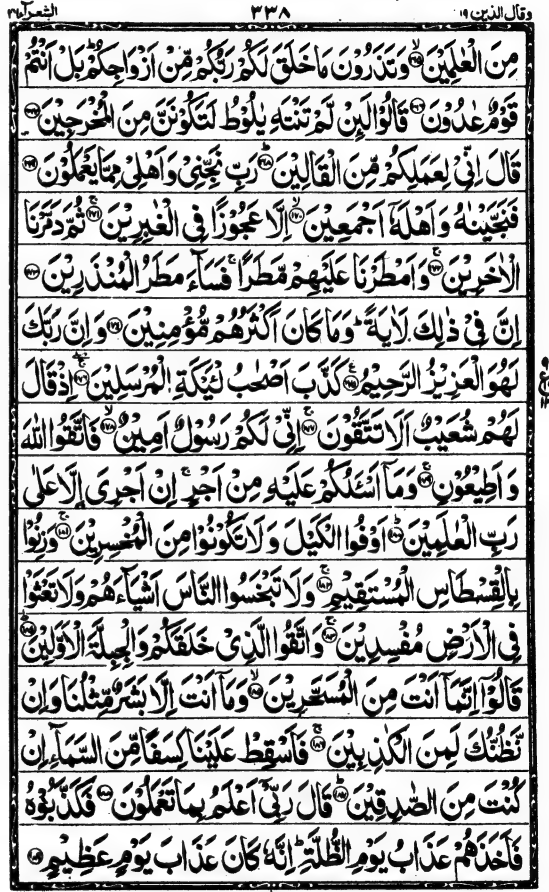 وقال الذین ١٩ ٣٣٨ الشعرآء ٢٦
مِنَ الْعٰلَمِيْنَ ﴿١٦٥﴾ وَتَذَرُوْنَ مَا خَلَقَ لَكُمْ رَبُّكُمْ مِّنْ اَزْوَاجِكُمْ ؕ بَلْ اَنْتُمْ
قَوْمٌ عٰدُوْنَ ﴿١٦٦﴾ قَالُوْا لَىِٕنْ لَّمْ تَنْتَهِ يٰلُوْطُ لَتَكُوْنَنَّ مِنَ الْمُخْرَجِيْنَ ﴿١٦٧﴾
قَالَ اِنِّىْ لِعَمَلِكُمْ مِّنَ الْقَالِيْنَ ؕ﴿١٦٨﴾ رَبِّ نَجِّنِىْ وَاَهْلِىْ مِمَّا يَعْمَلُوْنَ ﴿١٦٩﴾
فَنَجَّيْنٰهُ وَاَهْلَهٗۤ اَجْمَعِيْنَ ۙ﴿١٧٠﴾ اِلَّا عَجُوْزًا فِى الْغٰبِرِيْنَ ۚ﴿١٧١﴾ ثُمَّ دَمَّرْنَا
الْاٰخَرِيْنَ ۚ﴿١٧٢﴾ وَاَمْطَرْنَا عَلَيْهِمْ مَّطَرًا ۚ فَسَآءَ مَطَرُ الْمُنْذَرِيْنَ ﴿١٧٣﴾
اِنَّ فِىْ ذٰلِكَ لَاٰيَةً ؕ وَمَا كَانَ اَكْثَرُهُمْ مُّؤْمِنِيْنَ ﴿١٧٤﴾ وَاِنَّ رَبَّكَ
لَهُوَ الْعَزِيْزُ الرَّحِيْمُ ﴿١٧٥﴾ كَذَّبَ اَصْحٰبُ لْــَٔيْكَةِ الْمُرْسَلِيْنَ ۚۖ﴿١٧٦﴾ اِذْ قَالَ
لَهُمْ شُعَيْبٌ اَلَا تَتَّقُوْنَ ۚ﴿١٧٧﴾ اِنِّىْ لَكُمْ رَسُوْلٌ اَمِيْنٌ ۙ﴿١٧٨﴾ فَاتَّقُوا اللّٰهَ
وَاَطِيْعُوْنِ ۚ﴿١٧٩﴾ وَمَاۤ اَسْـَٔلُكُمْ عَلَيْهِ مِنْ اَجْرٍ ۚ اِنْ اَجْرِىَ اِلَّا عَلٰى
رَبِّ الْعٰلَمِيْنَ ؕ﴿١٨٠﴾ اَوْفُوا الْكَيْلَ وَلَا تَكُوْنُوْا مِنَ الْمُخْسِرِيْنَ ۚ﴿١٨١﴾ وَزِنُوْا
بِالْقِسْطَاسِ الْمُسْتَقِيْمِ ۚ﴿١٨٢﴾ وَلَا تَبْخَسُوا النَّاسَ اَشْيَآءَهُمْ وَلَا تَعْثَوْا
فِى الْاَرْضِ مُفْسِدِيْنَ ۚ﴿١٨٣﴾ وَاتَّقُوا الَّذِىْ خَلَقَكُمْ وَالْجِبِلَّةَ الْاَوَّلِيْنَ ؕ﴿١٨٤﴾
قَالُوْۤا اِنَّمَاۤ اَنْتَ مِنَ الْمُسَحَّرِيْنَ ۙ﴿١٨٥﴾ وَمَاۤ اَنْتَ اِلَّا بَشَرٌ مِّثْلُنَا وَاِنْ
نَّظُنُّكَ لَمِنَ الْكٰذِبِيْنَ ۚ﴿١٨٦﴾ فَاَسْقِطْ عَلَيْنَا كِسَفًا مِّنَ السَّمَآءِ اِنْ
كُنْتَ مِنَ الصّٰدِقِيْنَ ؕ﴿١٨٧﴾ قَالَ رَبِّىْۤ اَعْلَمُ بِمَا تَعْمَلُوْنَ ﴿١٨٨﴾ فَكَذَّبُوْهُ
فَاَخَذَهُمْ عَذَابُ يَوْمِ الظُّلَّةِ ؕ اِنَّهٗ كَانَ عَذَابَ يَوْمٍ عَظِيْمٍ ﴿١٨٩﴾